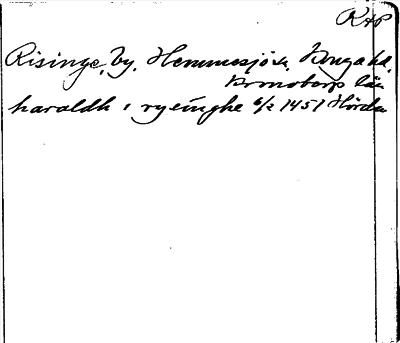 RAP
Risinge, by, Hemmesjö sn, Konga hd,
Kronobergs län
haraldh i rysinghe 6/2 1451 Hörda